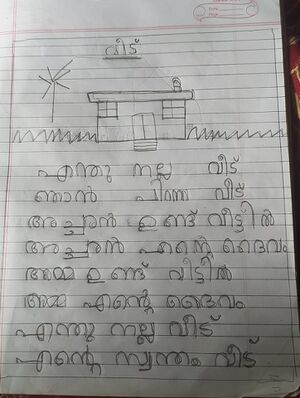 വീട്
എന്തു നല്ല വീട്
ഞാൻ പിറന്ന വീട്
അച്ഛൻ ഉണ്ട് വീട്ടിൽ
അച്ഛൻ എന്റെ ദൈവം
അമ്മ ഉണ്ട് വീട്ടിൽ
അമ്മ എന്റെ ദൈവം
എന്തു നല്ല വീട്
എന്റെ സ്വന്തം വീട്